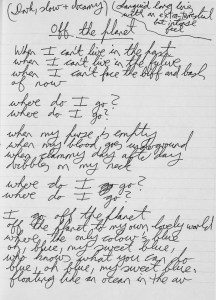 (Dark, slow + dreamy)
(languid long lines
with an extra-terrestrial
but intense
feel)
Off the planet
When I can't live in the past
when I can't live in the future
when I can't face the biff and bash
of now
where do I go?
where do I go?
when my purse is empty
when my blood goes underground
when clammy day after day
dribbles on my neck
where do I go?
where do I go?
I go off the planet
off the planet to my own lovely world
where the only colour's blue
oh, blue, my sweet blue,
who knows what you can do
blue oh blue, my sweet blue,
floating like an ocean in the air